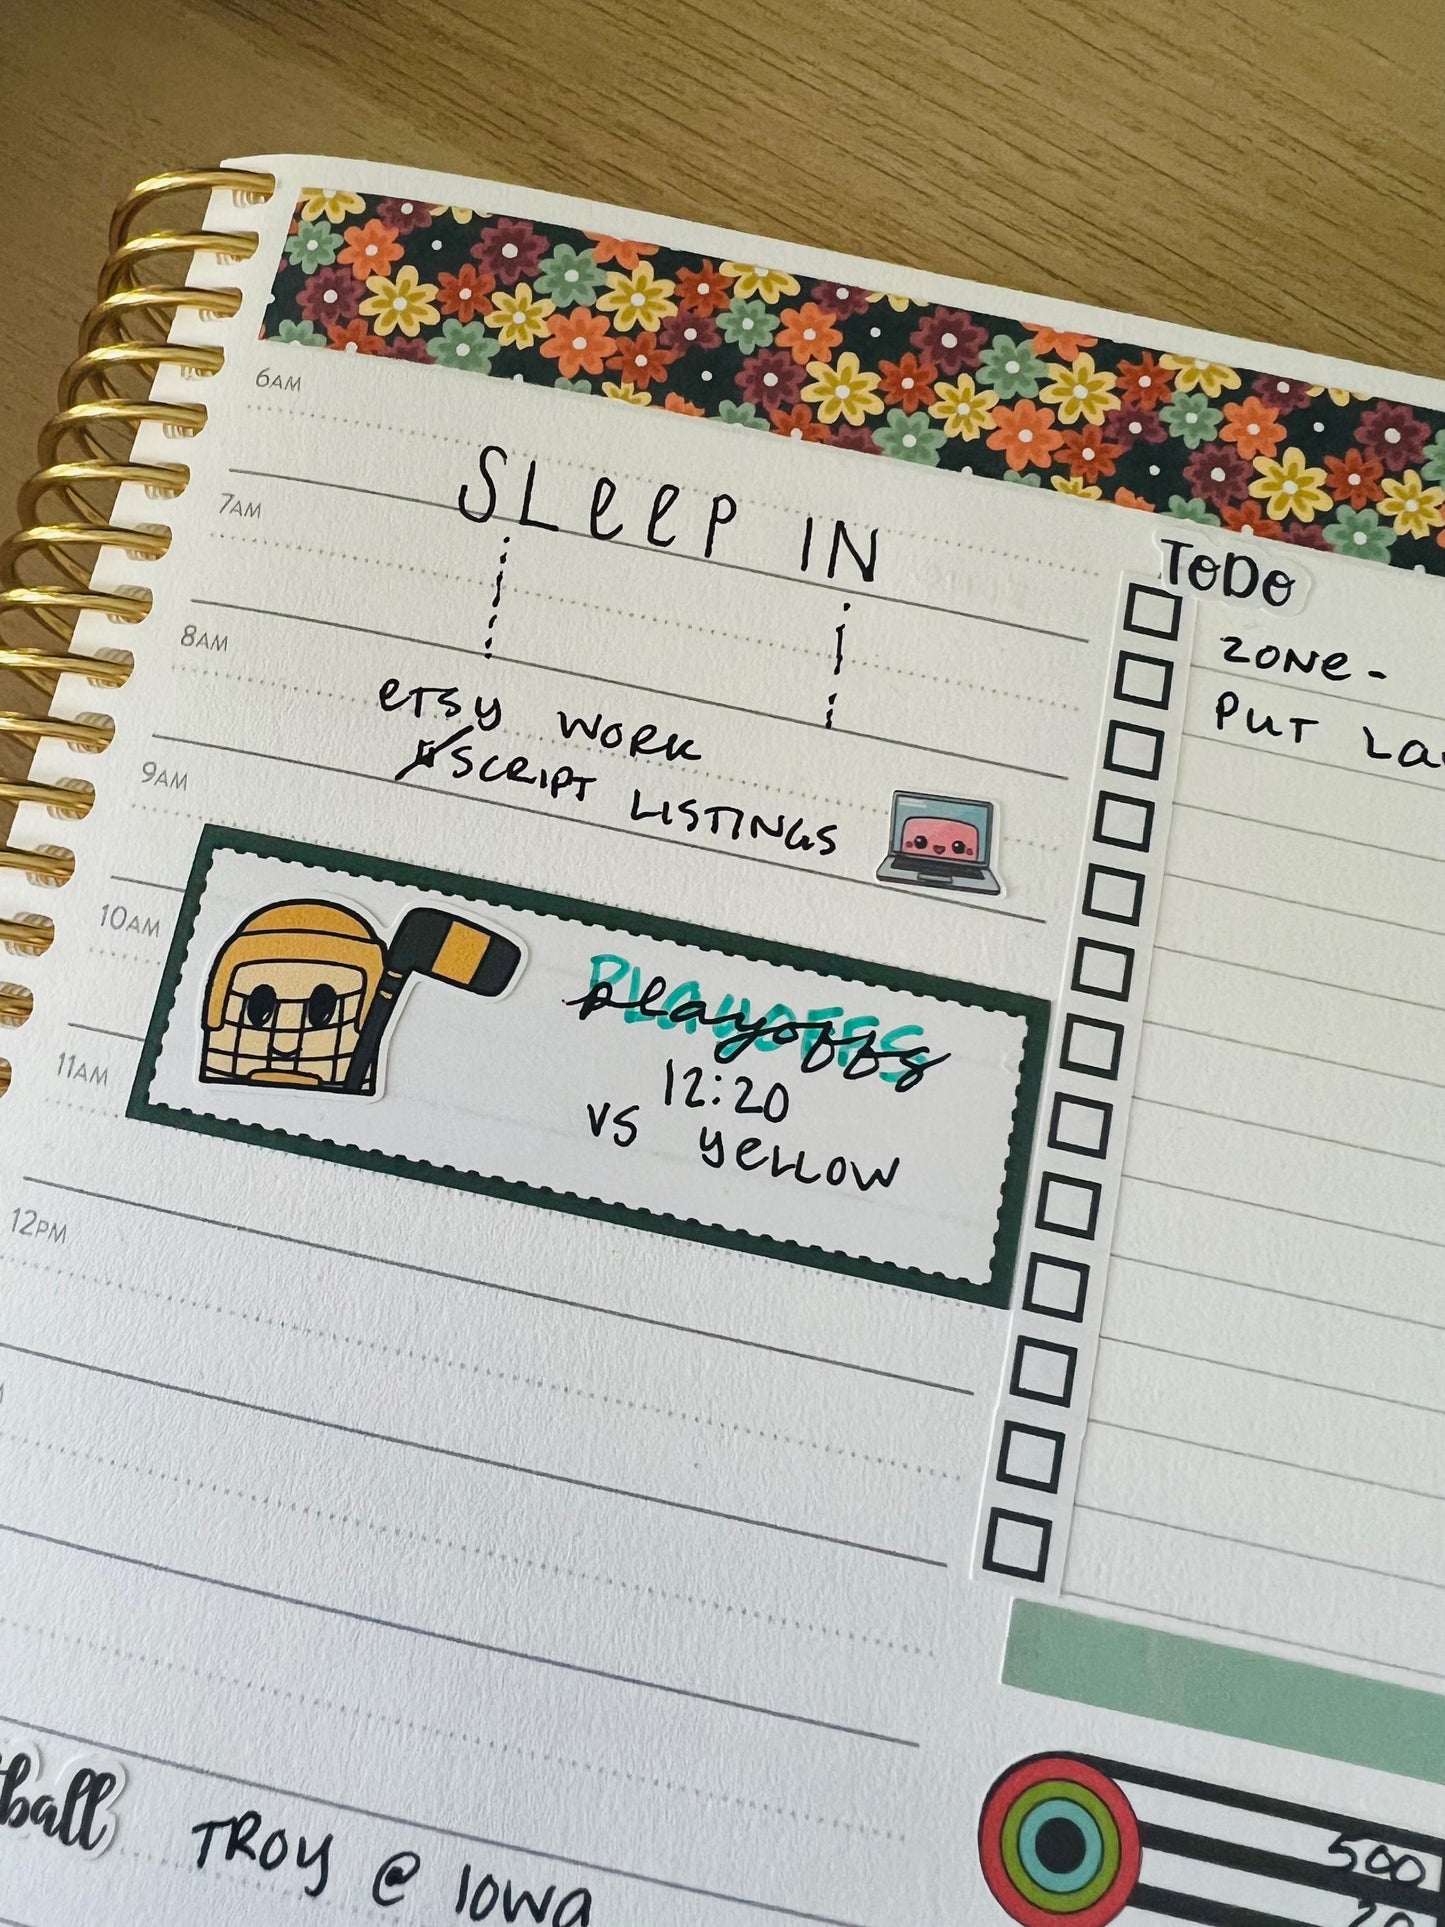 6AM
SLeeP IN
7AM
8AM
eTSY WORK
SCRIPT LISTINGS
9AM
10AM
PLAYOFFS
playoffs
12:20
VS YeLLOW
11AM
12PM
ToDo
ZONe-
PUT
ball
TROY @ IOWA
500
20